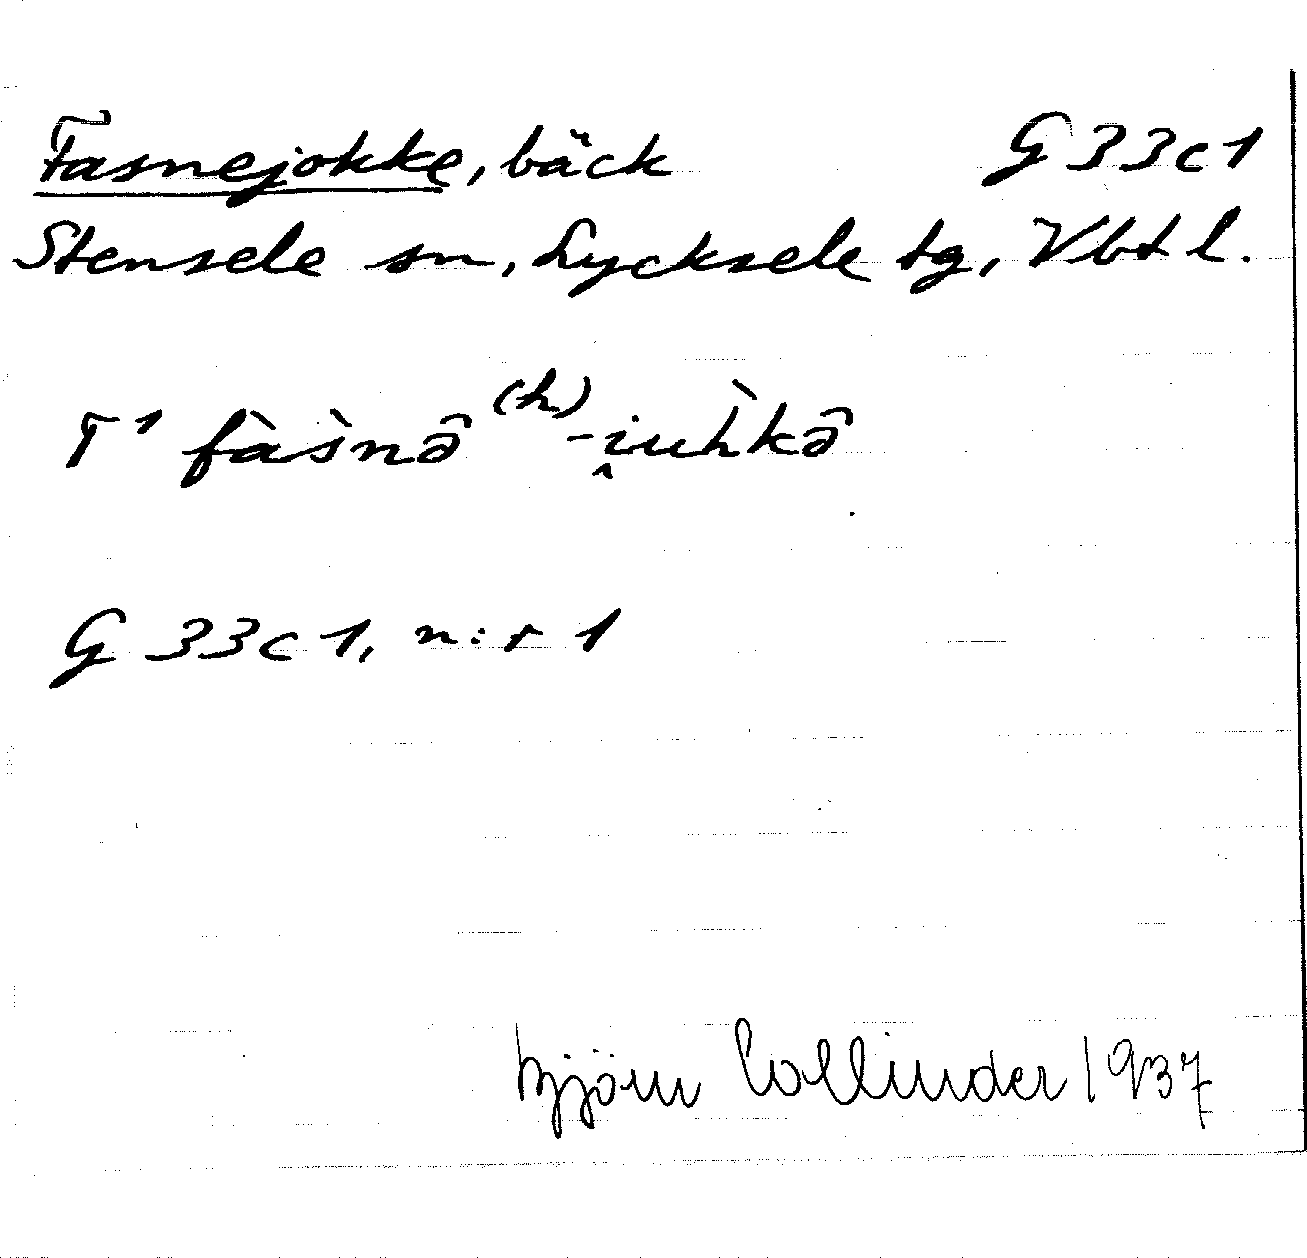 Fasnejokke, bäck G33c1
Stensele sn, Lycksele tg, Vbt l.
T¹ fàs̀nə̂ ⁽ʰ⁾-i̭uh̀kə̂
G 33c1, n:r 1
Björn Collinder 1937